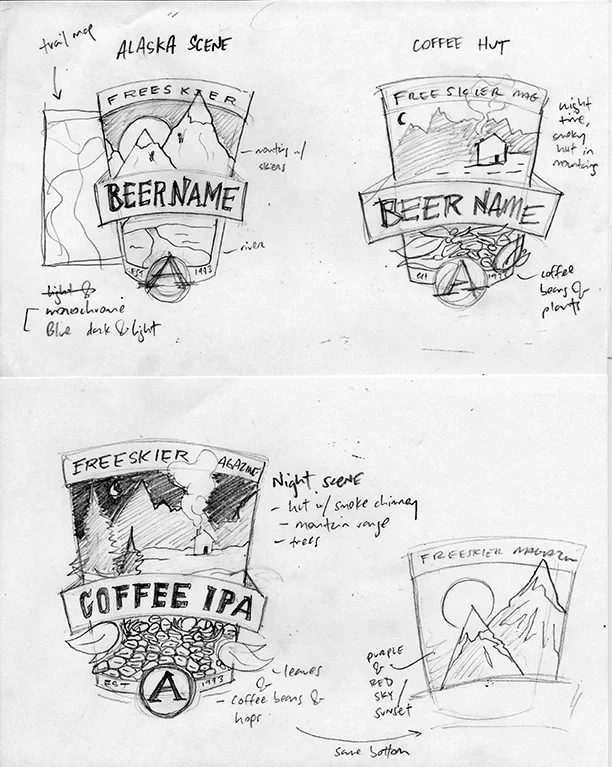 trail map
ALASKA SCENE
FREESKIER
mountins w/
skiers
BEER NAME
river
EST
1993
A
light &
monochrome
Blue dark & light
COFFEE HUT
FREESKIER MAG
night
time,
smoky
hut in
mountins
BEER NAME
EST
1993
A
coffee
beans &
plants
FREESKIER MAGAZINE
Night Scene
- hut w/ smoke chimney
- mountain range
- trees
COFFEE IPA
EST
1993
A
- leaves
&
- coffee beans &
hops
FREESKIER MAGAZIN
PURPLE
&
RED
SKY/
SUNSET
same bottom